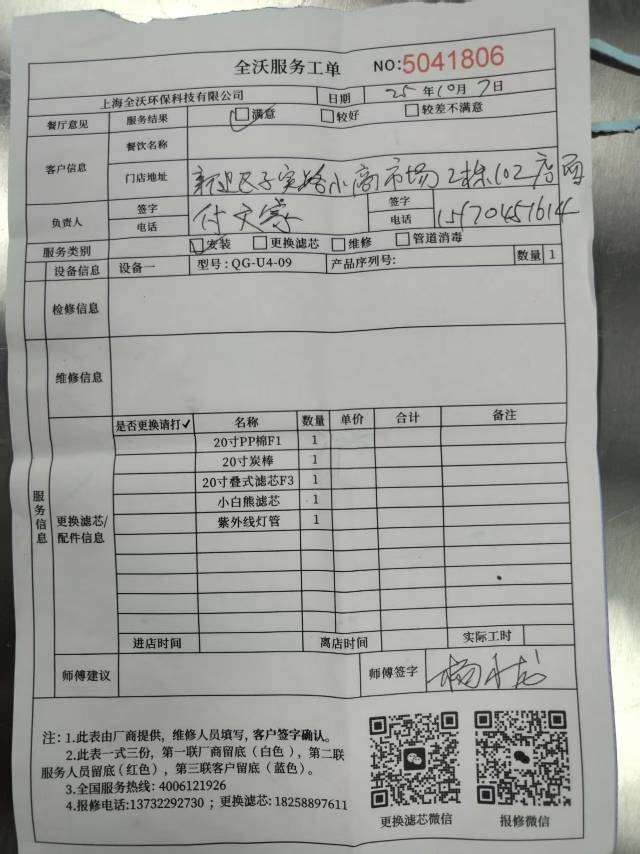 全沃服务工单 NO:5041806
上海全沃环保科技有限公司 日期 25年10月7日
餐厅意见 服务结果 满意 较好 较差不满意
客户信息 餐饮名称
门店地址 小商市场2栋102店面
负责人 签字 电话 签字 电话 15670451614
服务类别 安装 更换滤芯 维修 管道消毒
设备信息 设备一 型号: QG-U4-09 产品序列号: 数量 1
检修信息
维修信息
服务信息
更换滤芯/配件信息
是否更换请打✓ 名称 数量 单价 合计 备注
20寸PP棉F1 1
20寸炭棒 1
20寸叠式滤芯F3 1
小白熊滤芯 1
紫外线灯管 1
进店时间 离店时间 实际工时
师傅建议 师傅签字
注: 1.此表由厂商提供，维修人员填写，客户签字确认。
2.此表一式三份，第一联厂商留底（白色），第二联
服务人员留底（红色），第三联客户留底（蓝色）。
3.全国服务热线: 4006121926
4.报修电话:13732292730 ; 更换滤芯: 18258897611
更换滤芯微信 报修微信